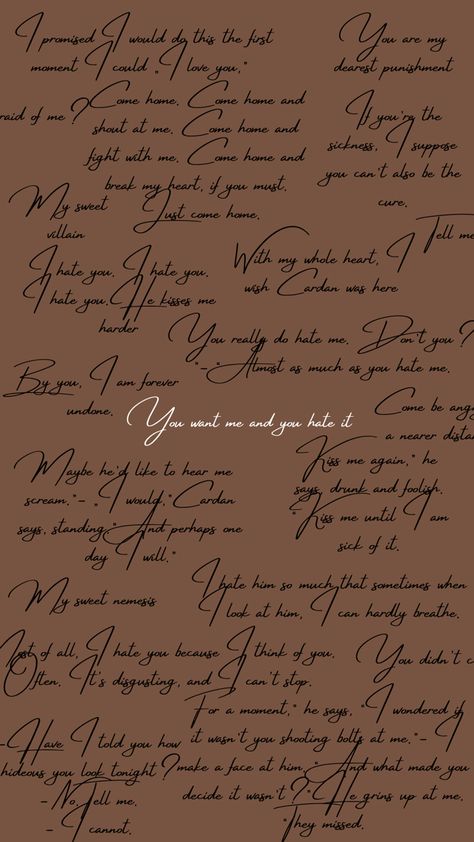 I promised I would do this the first
moment I could „ I love you,"
You are my
dearest punishment
raid of me?
Come home. Come home and
shout at me. Come home and
fight with me. Come home and
break my heart, if you must.
Just come home.
If you're the
sickness, I suppose
you can't also be the
cure.
My sweet
villain
Tell me
I hate you. I hate you.
I hate you. He kisses me
harder
With my whole heart, I
wish Cardan was here
You really do hate me. Don't you?
"-"Almost as much as you hate me.
By you, I am forever
undone.
You want me and you hate it
Come be ang
a nearer dista
Maybe he'd like to hear me
scream."- „I would,"Cardan
says, standing."And perhaps one
day I will."
Kiss me again," he
says, drunk and foolish.
"Kiss me until I am
sick of it.
My sweet nemesis
I hate him so much that sometimes when
I look at him, I can hardly breathe.
ost of all, I hate you because I think of you.
Often. It's disgusting, and I can't stop.
You didn't c
For a moment," he says, "I wondered if
it wasn't you shooting bolts at me."- I
make a face at him, "And what made you
decide it wasn't?"He grins up at me.
"They missed.
-Have I told you how
hideous you look tonight?
- No. Tell me.
- I cannot.